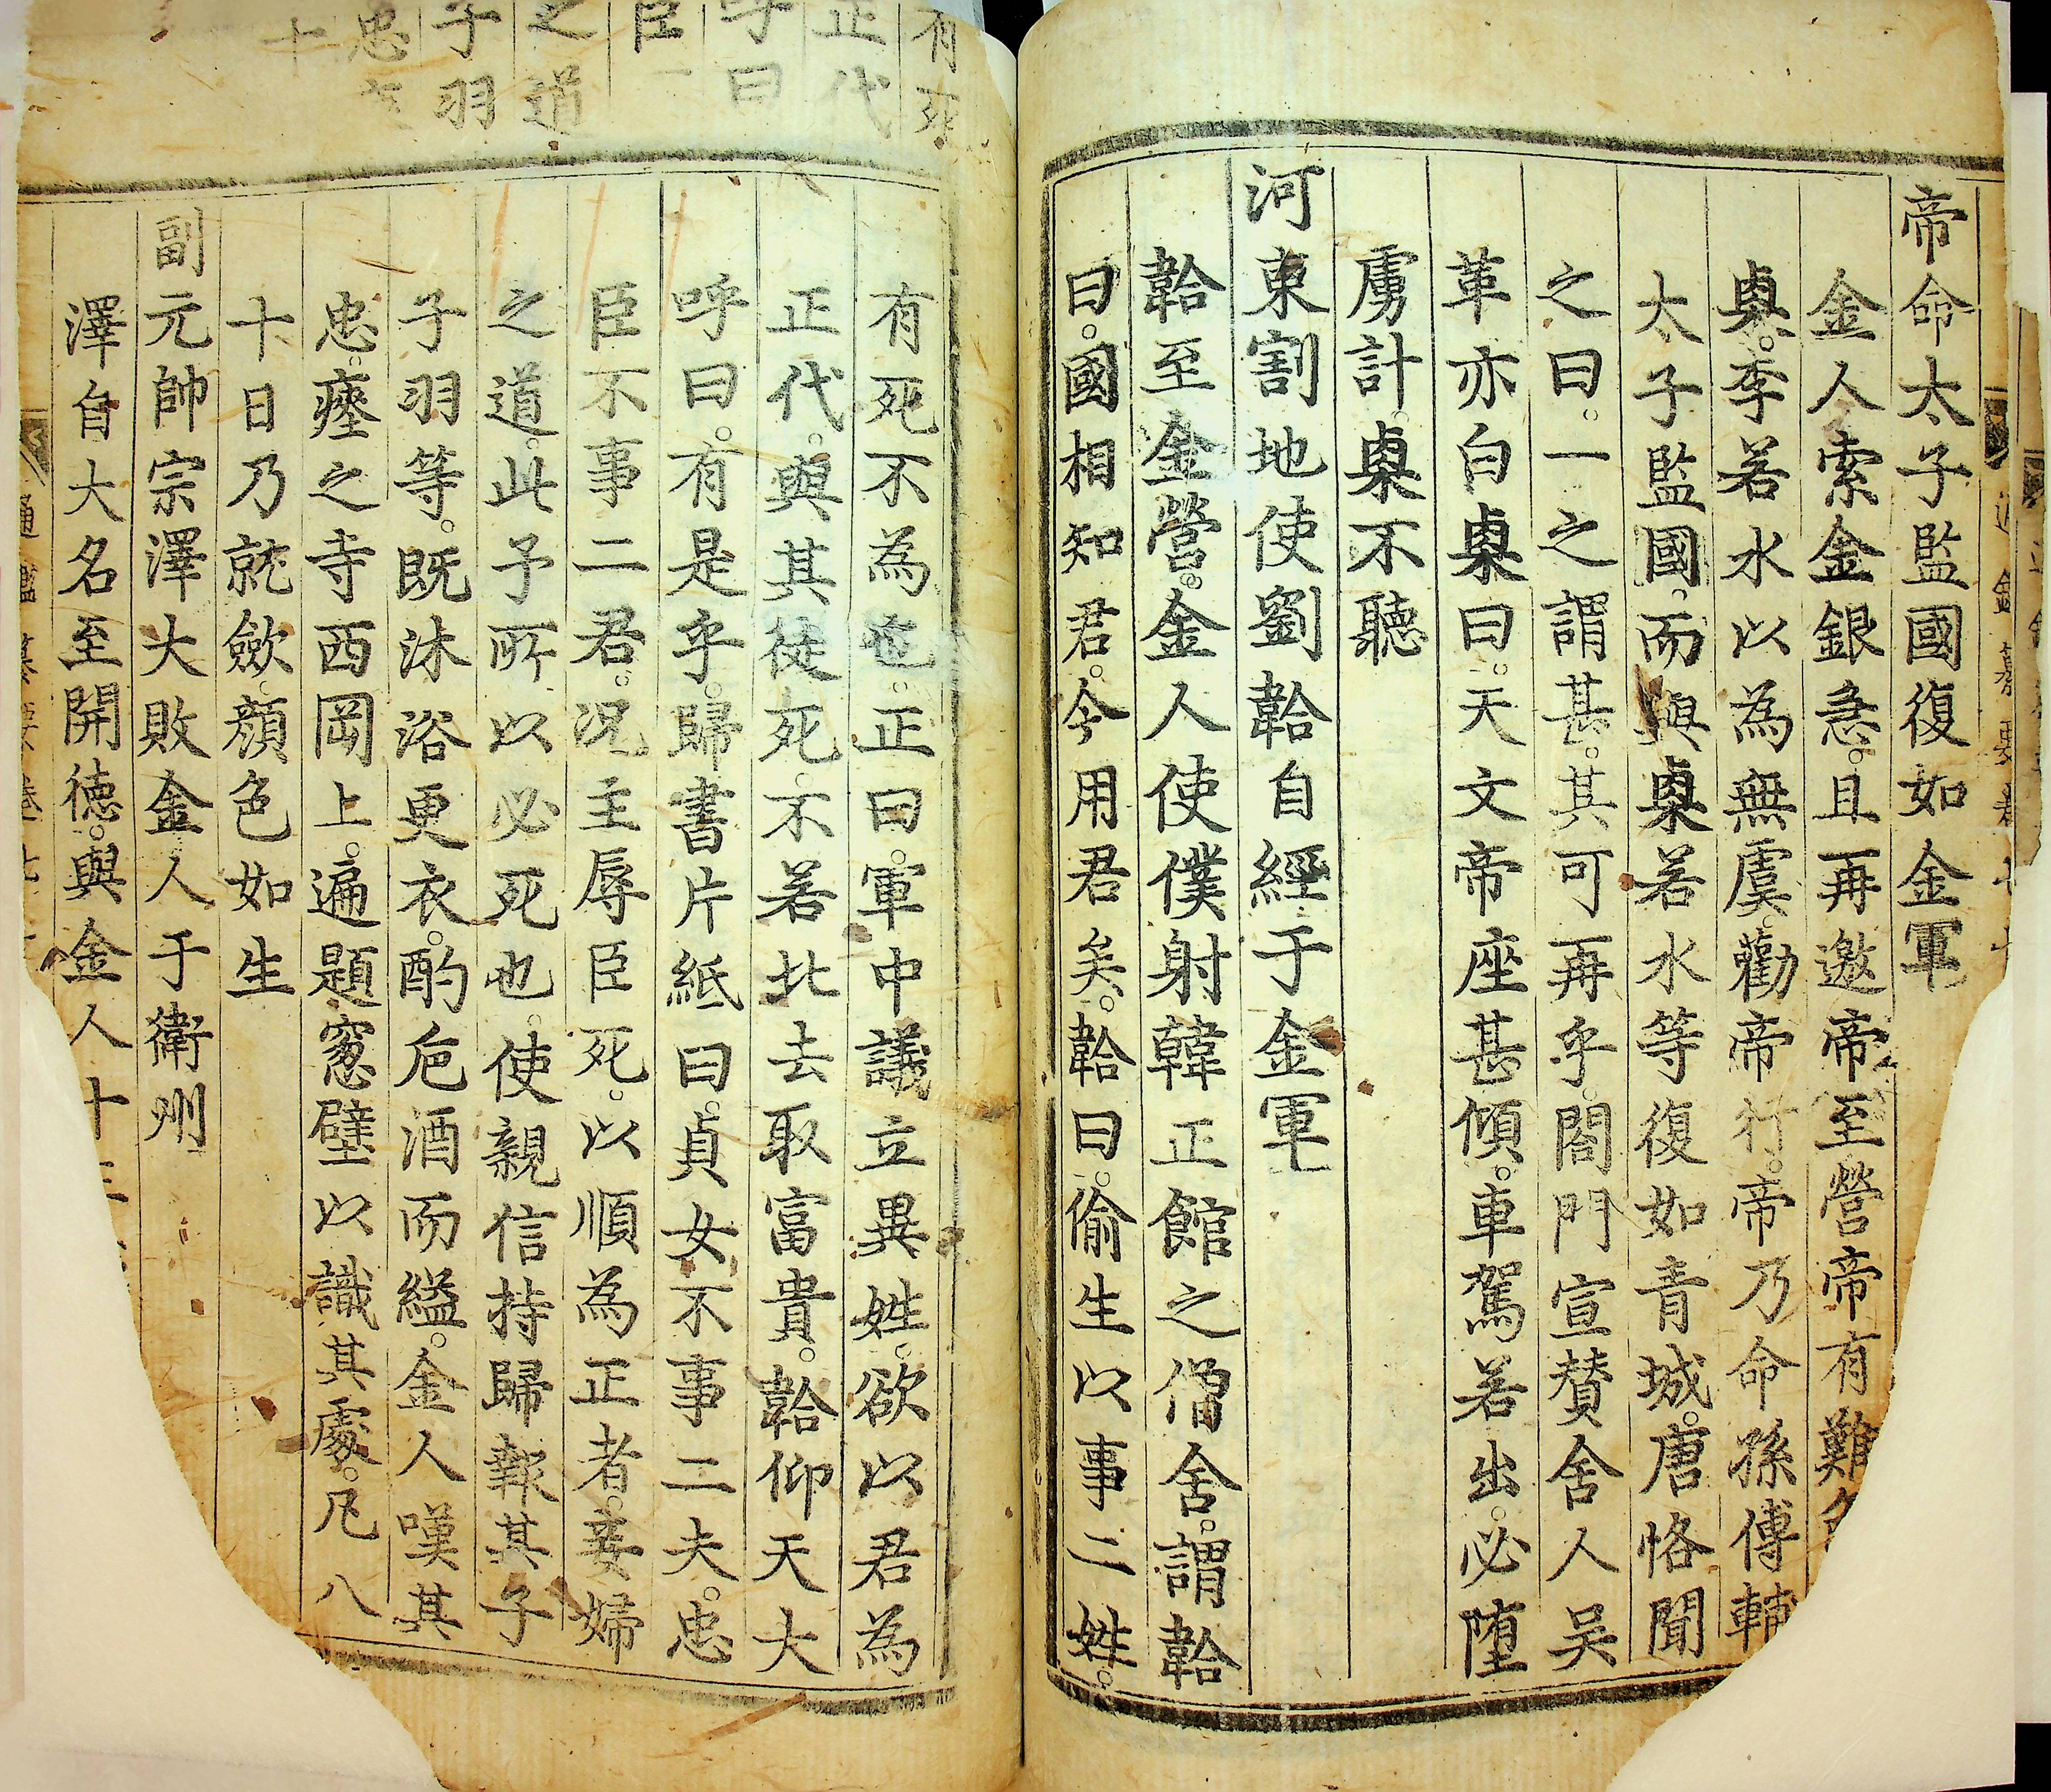 帝命太子監國復如金軍
金人索金銀急。且再邀帝至營帝有難
㮚。李若水以為無虞。勸帝行。帝乃命孫傅輔
太子監國。而與㮚若水等復如青城。唐恪聞
之曰。一之謂甚。其可再乎。閤門宣賛舍人吴
革亦白㮚曰。天文帝座甚傾。車駕若出。必堕
虜計。㮚不聽
河東割地使劉韐自經于金軍
韐至金營。金人使僕射韓正館之僧舍。謂韐
曰。國相知君。今用君矣。韐曰。偷生以事二姓。
有死不為也。正曰。軍中議立異姓。欲以君為
正代。與其徒死。不若北去取富貴。韐仰天大
呼曰。有是乎。歸書片紙曰。貞女不事二夫。忠
臣不事二君。况主辱臣死。以順為正者。妾婦
之道。此予所以必死也。使親信持歸報其子
子羽等。既沐浴更衣。酌卮酒而縊。金人嘆其
忠。瘞之寺西岡上。遍題窓壁以識其處。凡八
十日乃就歛。顔色如生
副元帥宗澤大敗金人于衛州
澤自大名至開徳。與金人十三
通鑑纂要卷
有死
正代
呼曰
臣
之道
子羽
忠
十